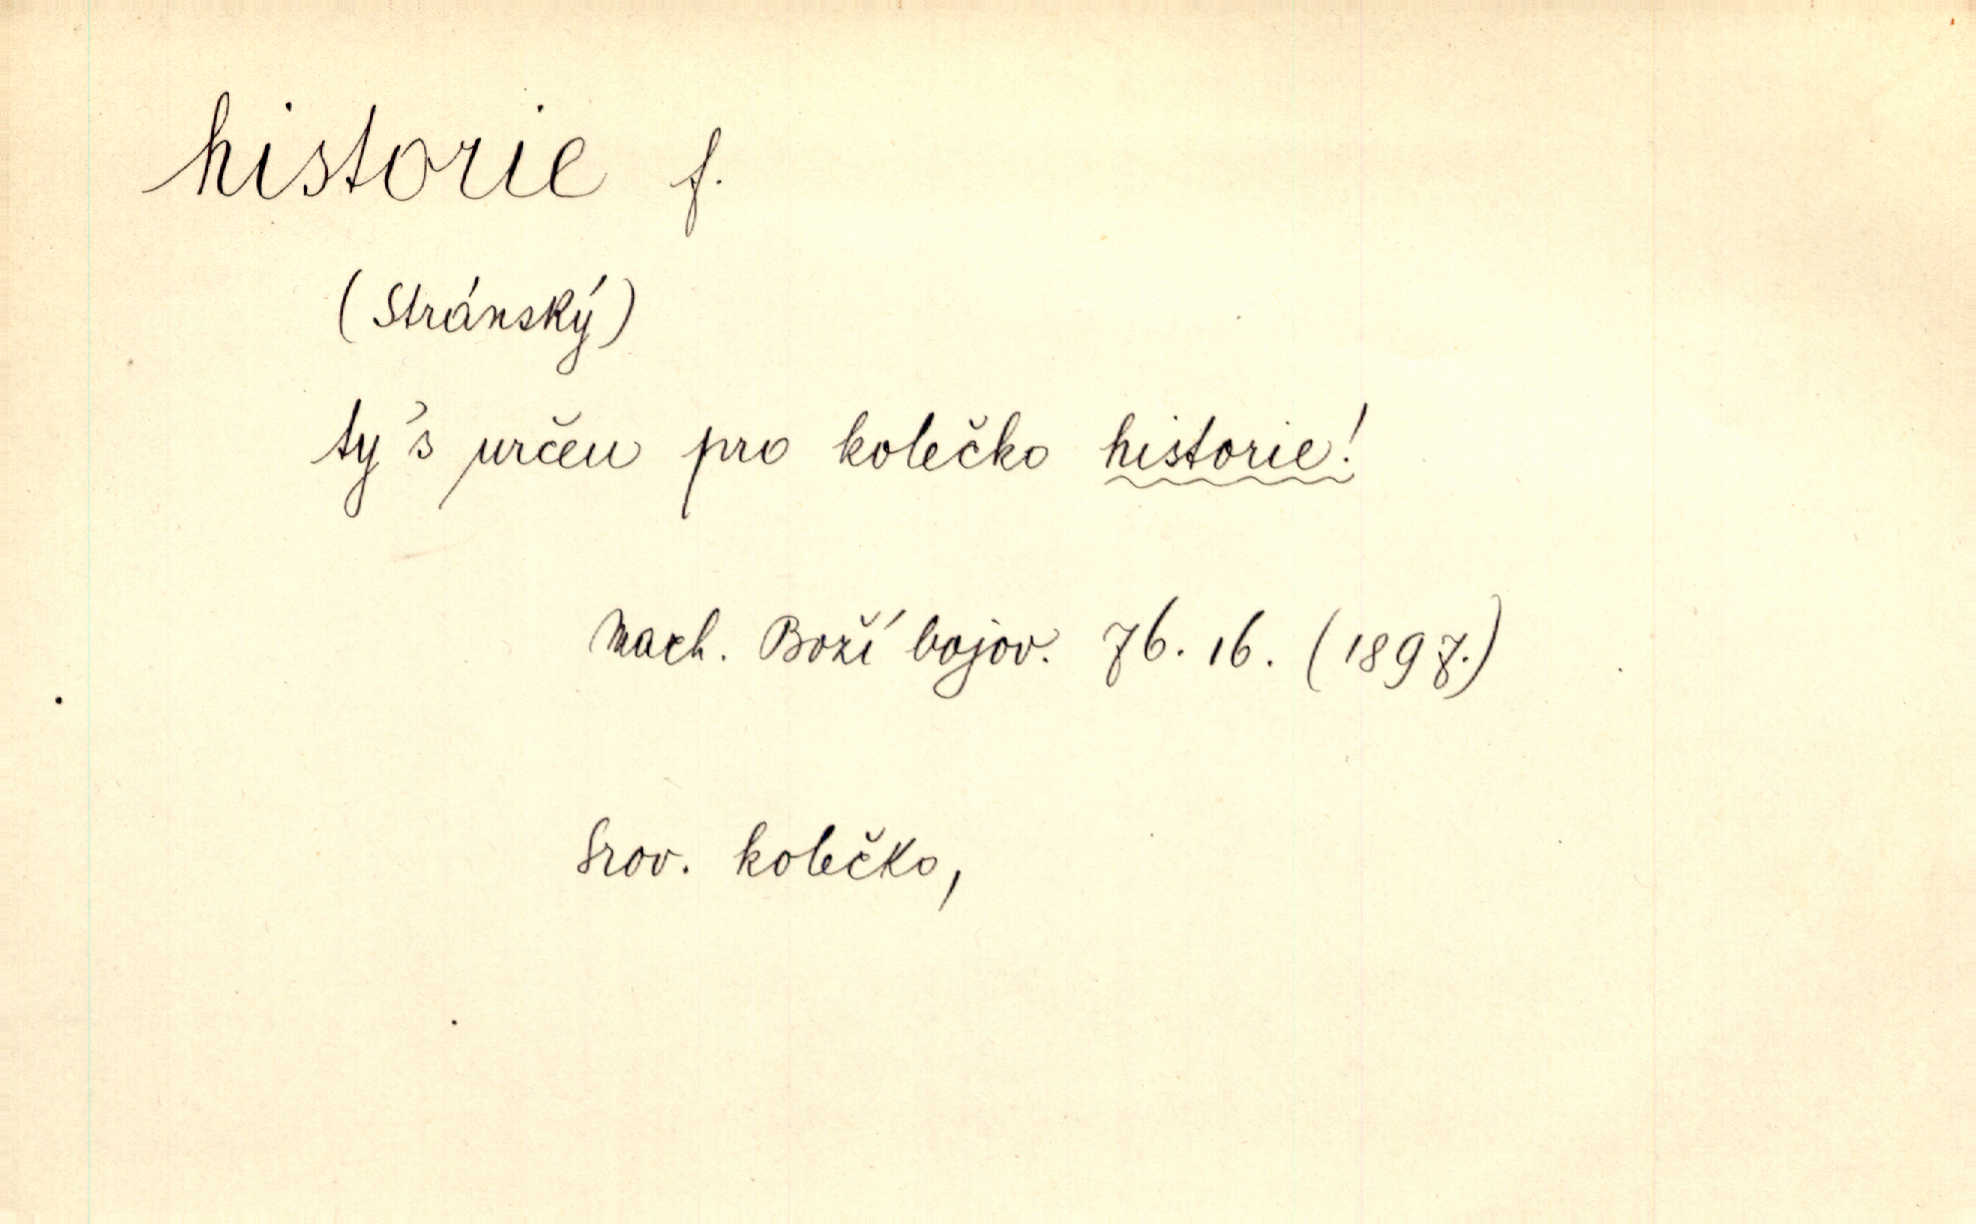 historie f.
(Stránský)
ty's určen pro kolečko historie!
Mach. Boží bojov. 76. 16. (1897.)
Srov. kolečko,